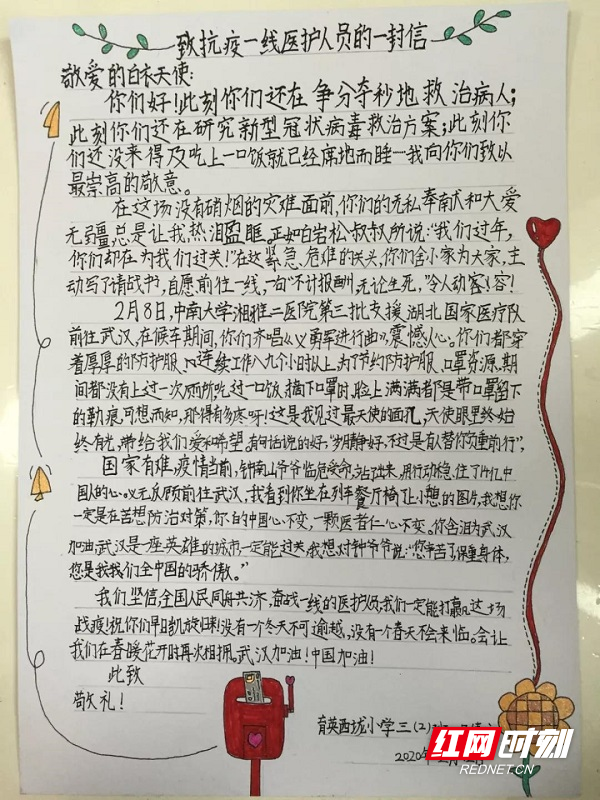 致抗疫一线医护人员的一封信
敬爱的白衣天使:
你们好!此刻你们还在争分夺秒地救治病人;
此刻你们还在研究新型冠状病毒救治方案;此刻你
们还没来得及吃上一口饭就已经席地而睡—我向你们致以
最崇高的敬意。
在这场没有硝烟的灾难面前,你们的无私奉献和大爱
无疆总是让我热泪盈眶。正如白岩松叔叔所说:“我们过年,
你们却在为我们过关!”在这紧急、危难的关头,你们舍小家为大家,主
动写了请战书,自愿前往一线,一句“不计报酬,无论生死,”令人动容!
2月8日,中南大学湘雅二医院第三批支援湖北国家医疗队
前往武汉,在候车期间,你们齐唱《义勇军进行曲》,震憾人心。你们都穿
着厚厚的防护服、连续工作八九个小时以上,为了节约防护服、口罩资源,期
间都没有上过一次厕所吃过一口饭,摘下口罩时,脸上满满都是带口罩留下
的勒痕,可想而知,那得有多疼呀!这是我见过最天使的面孔,天使眼里终始
终有光,带给我们爱和希望。有句话说的好,“岁月静好,不过是有人替你负重前行”,
国家有难,疫情当前,钟南山爷爷临危受命,站出来,用行动稳住了14亿中
国人的心。义无反顾前往武汉,我看到你坐在列车餐厅椅上小憩的图片,我想你
一定是在苦想防治对策,你的中国心不变,一颗医者仁心不变。你含泪为武汉
加油,武汉是一座英雄的城市一定能过关,我想对钟爷爷说:“您辛苦了,保重身体,
您是我我们全中国的骄傲。”
我们坚信,全国人民同舟共济,奋战一线的医护人员,我们一定能打赢这场
战疫!祝你们早日凯旋归来!没有一个冬天不可逾越,没有一个春天不会来临。会让
我们在春暖花开时再次相拥。武汉加油!中国加油!
此致
敬礼!
育英西垅小学三(2)
2020年
红网时刻
REDNET.CN